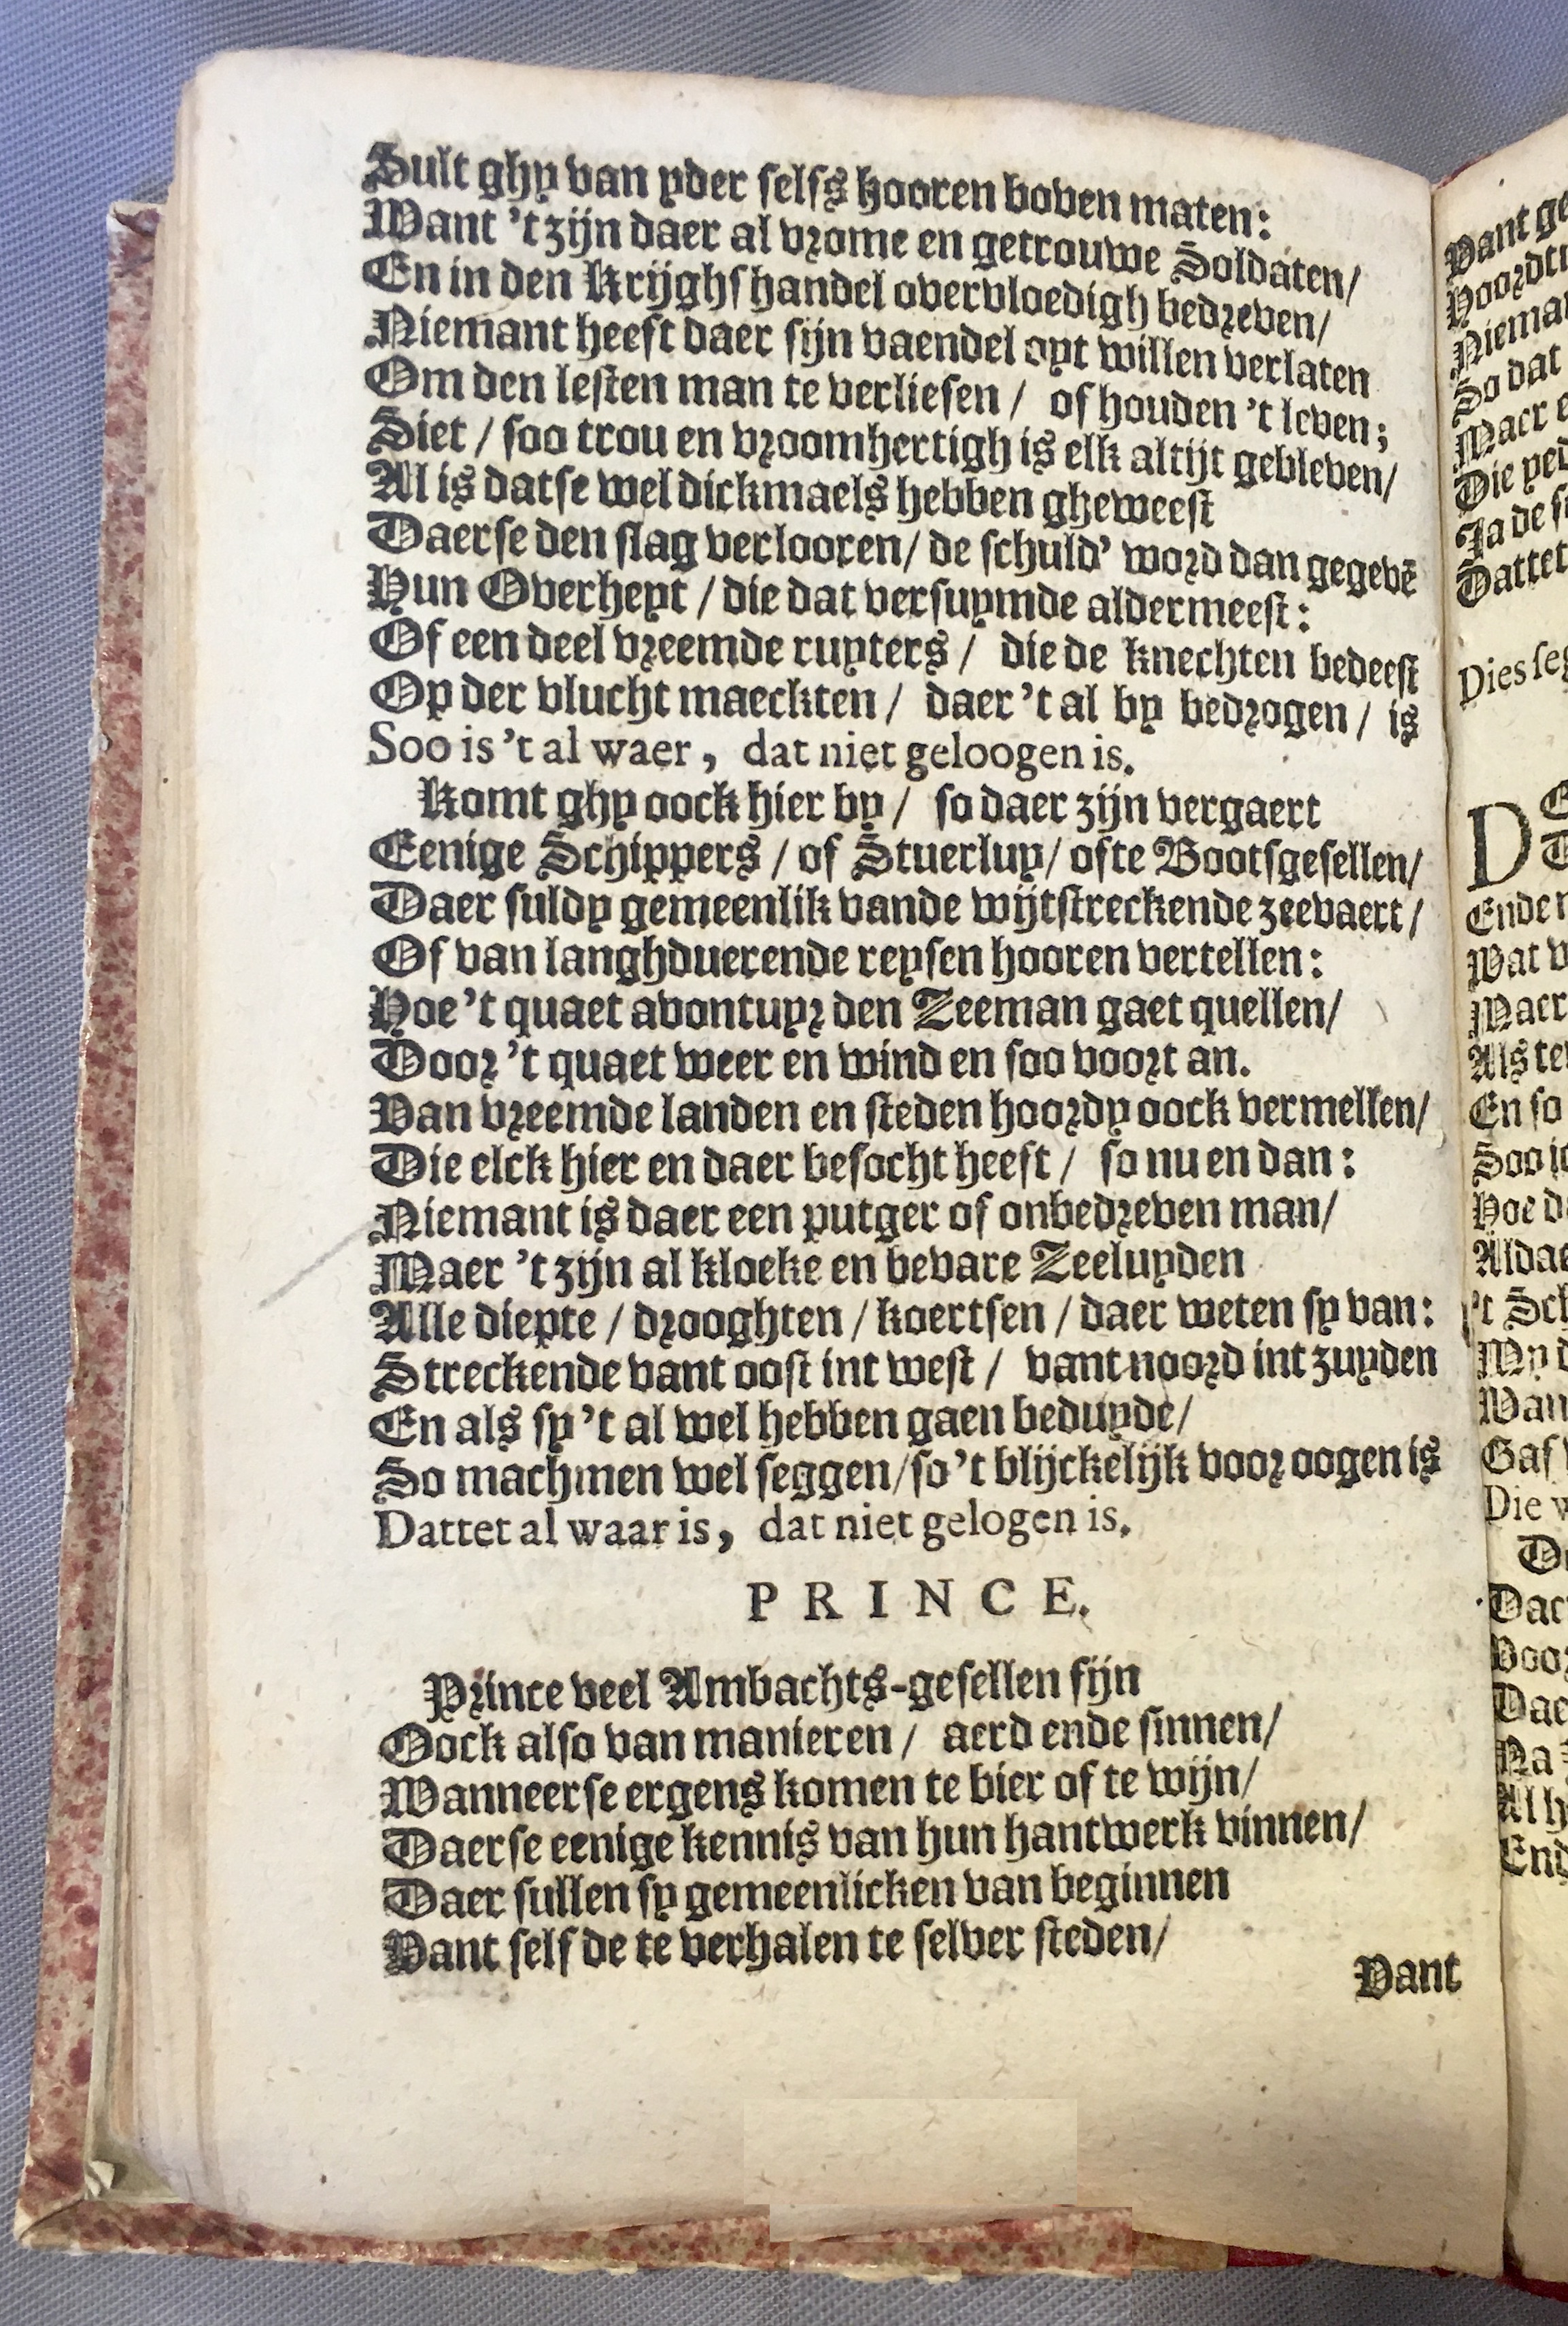 Sult ghy van yder selfs hooren boven maten:
Want 't zijn daer al vrome en getrouwe Soldaten/
En in den Krijghshandel overvloedigh bedreven/
Niemant heeft daer sijn vaendel oyt willen verlaten
Om den lesten man te verliesen / of houden 't leven;
Siet / soo trou en vroomhertigh is elk altijt gebleven/
Al is datse wel dickmaels hebben gheweest
Daerse den slag verlooren/ de schuld' word dan gegevē
Hun Overheyt / die dat versuymde aldermeest:
Of een deel vreemde ruyters / die de knechten bedeest
Op der vlucht maeckten / daer 't al by bedrogen / is
Soo is 't al waer, dat niet geloogen is.
Komt ghy oock hier by / so daer zijn vergaert
Eenige Schippers / of Stuerluy/ ofte Bootsgesellen/
Daer suldy gemeenlik vande wijtstreckende zeevaert/
Of van langhduerende reysen hooren vertellen:
Hoe 't quaet avontuyr den Zeeman gaet quellen/
Door 't quaet weer en wind en soo voort an.
Van vreemde landen en steden hoordy oock vermellen/
Die elck hier en daer besocht heeft / so nu en dan:
Niemant is daer een putger of onbedreven man/
Maer 't zijn al kloeke en bevare Zeeluyden
Alle diepte / drooghten / koertsen / daer weten sy van:
Streckende vant oost int west / vant noord int zuyden
En als sy 't al wel hebben gaen beduyde/
So machmen wel seggen/so 't blijckelijk voor oogen is
Dattet al waar is, dat niet gelogen is.
PRINCE.
Prince veel Ambachts-gesellen sijn
Oock also van manieren / aerd ende sinnen/
Wanneerse ergens komen te bier of te wijn/
Daerse eenige kennis van hun hantwerk vinnen/
Daer sullen sy gemeenlicken van beginnen
Vant selfde te verhalen te selver steden/
Vant